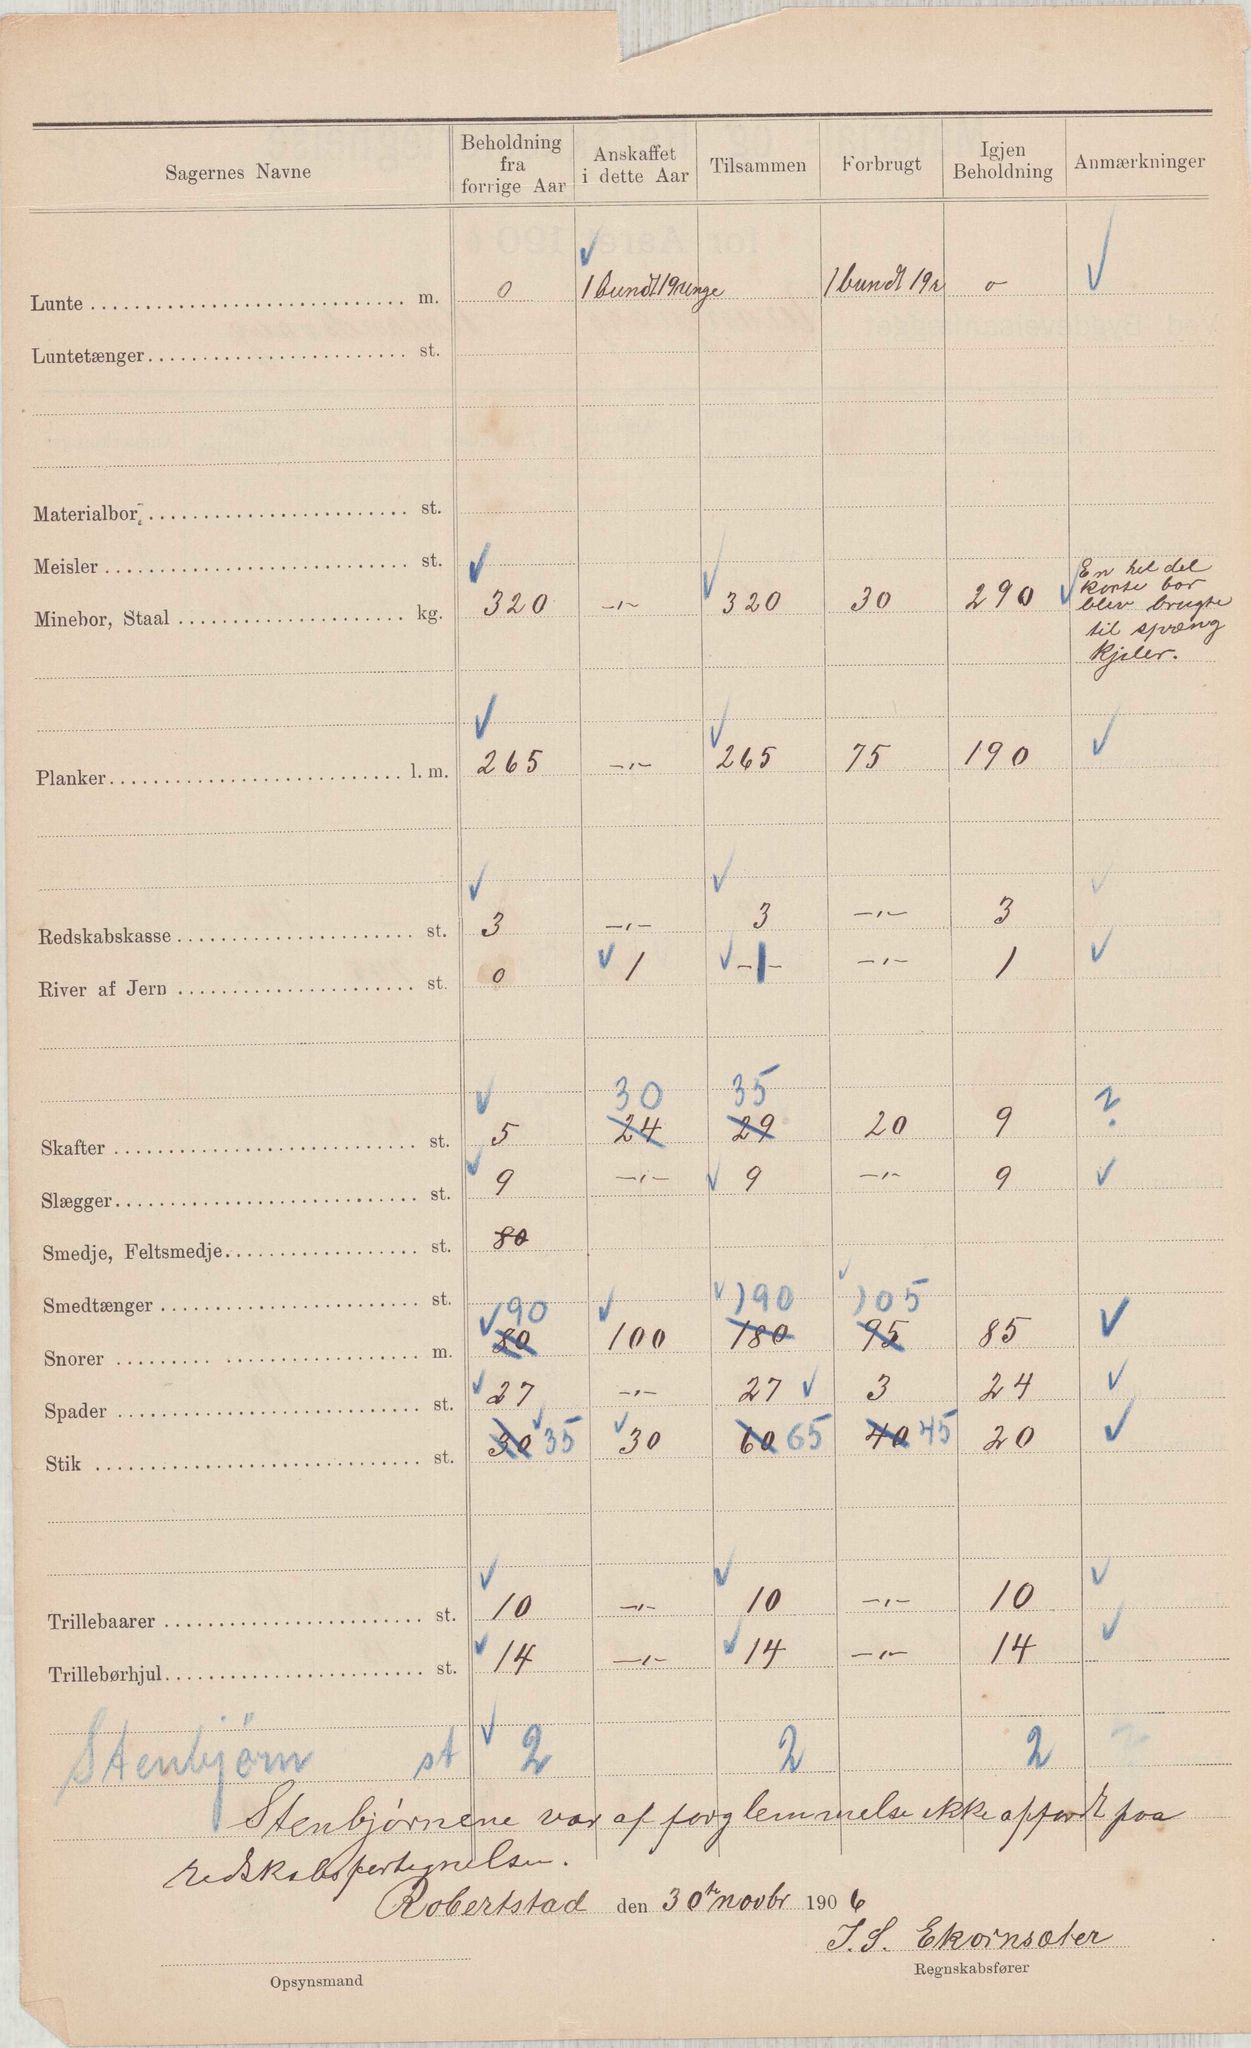 Sagernes Navne | Beholdning fra forrige Aar | Anskaffet i dette Aar | Tilsammen | Forbrugt | Igjen Beholdning | Anmærkninger
Lunte m. | 0 | ✓ 1 bundt 19 ringe | | 1 bundt 19 r | 0 | ✓
Luntetænger st.
Materialbor st.
Meisler st.
Minebor, Staal kg. | ✓ 320 | -"- | ✓ 320 | 30 | 290 | ✓ En hel del korte bor blev brugte til spræng kjiler.
Planker l. m. | ✓ 265 | -"- | ✓ 265 | 75 | 190 | ✓
Redskabskasse st. | ✓ 3 | -"- | ✓ 3 | -"- | 3 | ✓
River af Jern st. | 0 | ✓ 1 | ✓ -1- | -"- | 1 | ✓
30 35
Skafter st. | ✓ 5 | 24 | 29 | 20 | 9 | ?
Slægger st. | ✓ 9 | -"- | ✓ 9 | -"- | 9 | ✓
Smedje, Feltsmedje st. | 80
Smedtænger st.
✓ 90 ✓ ✓ 190 ✓ 105
Snorer m. | 80 | 100 | 180 | 95 | 85 | ✓
Spader st. | ✓ 27 | -"- | 27 ✓ | 3 | 24 | ✓
Stik st. | 30 ✓ 35 | ✓ 30 | 60 65 | 40 45 | 20 | ✓
Trillebaarer st. | ✓ 10 | -"- | ✓ 10 | -"- | 10 | ✓
Trillebørhjul st. | ✓ 14 | -"- | ✓ 14 | -"- | 14 | ✓
Stenbjørn st | ✓ 2 | | 2 | | 2
Stenbjørnene var af forglemmelse ikke opført paa
redskabsfortegnelsen.
Robertstad den 30te novbr 1906
J. S. Ekornsæter
Opsynsmand Regnskabsfører